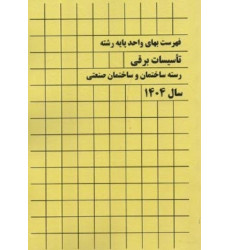 فهرست بهای واحد پایه رشته
تأسیسات برقی
رسته ساختمان و ساختمان صنعتی
سال ۱۴۰۴